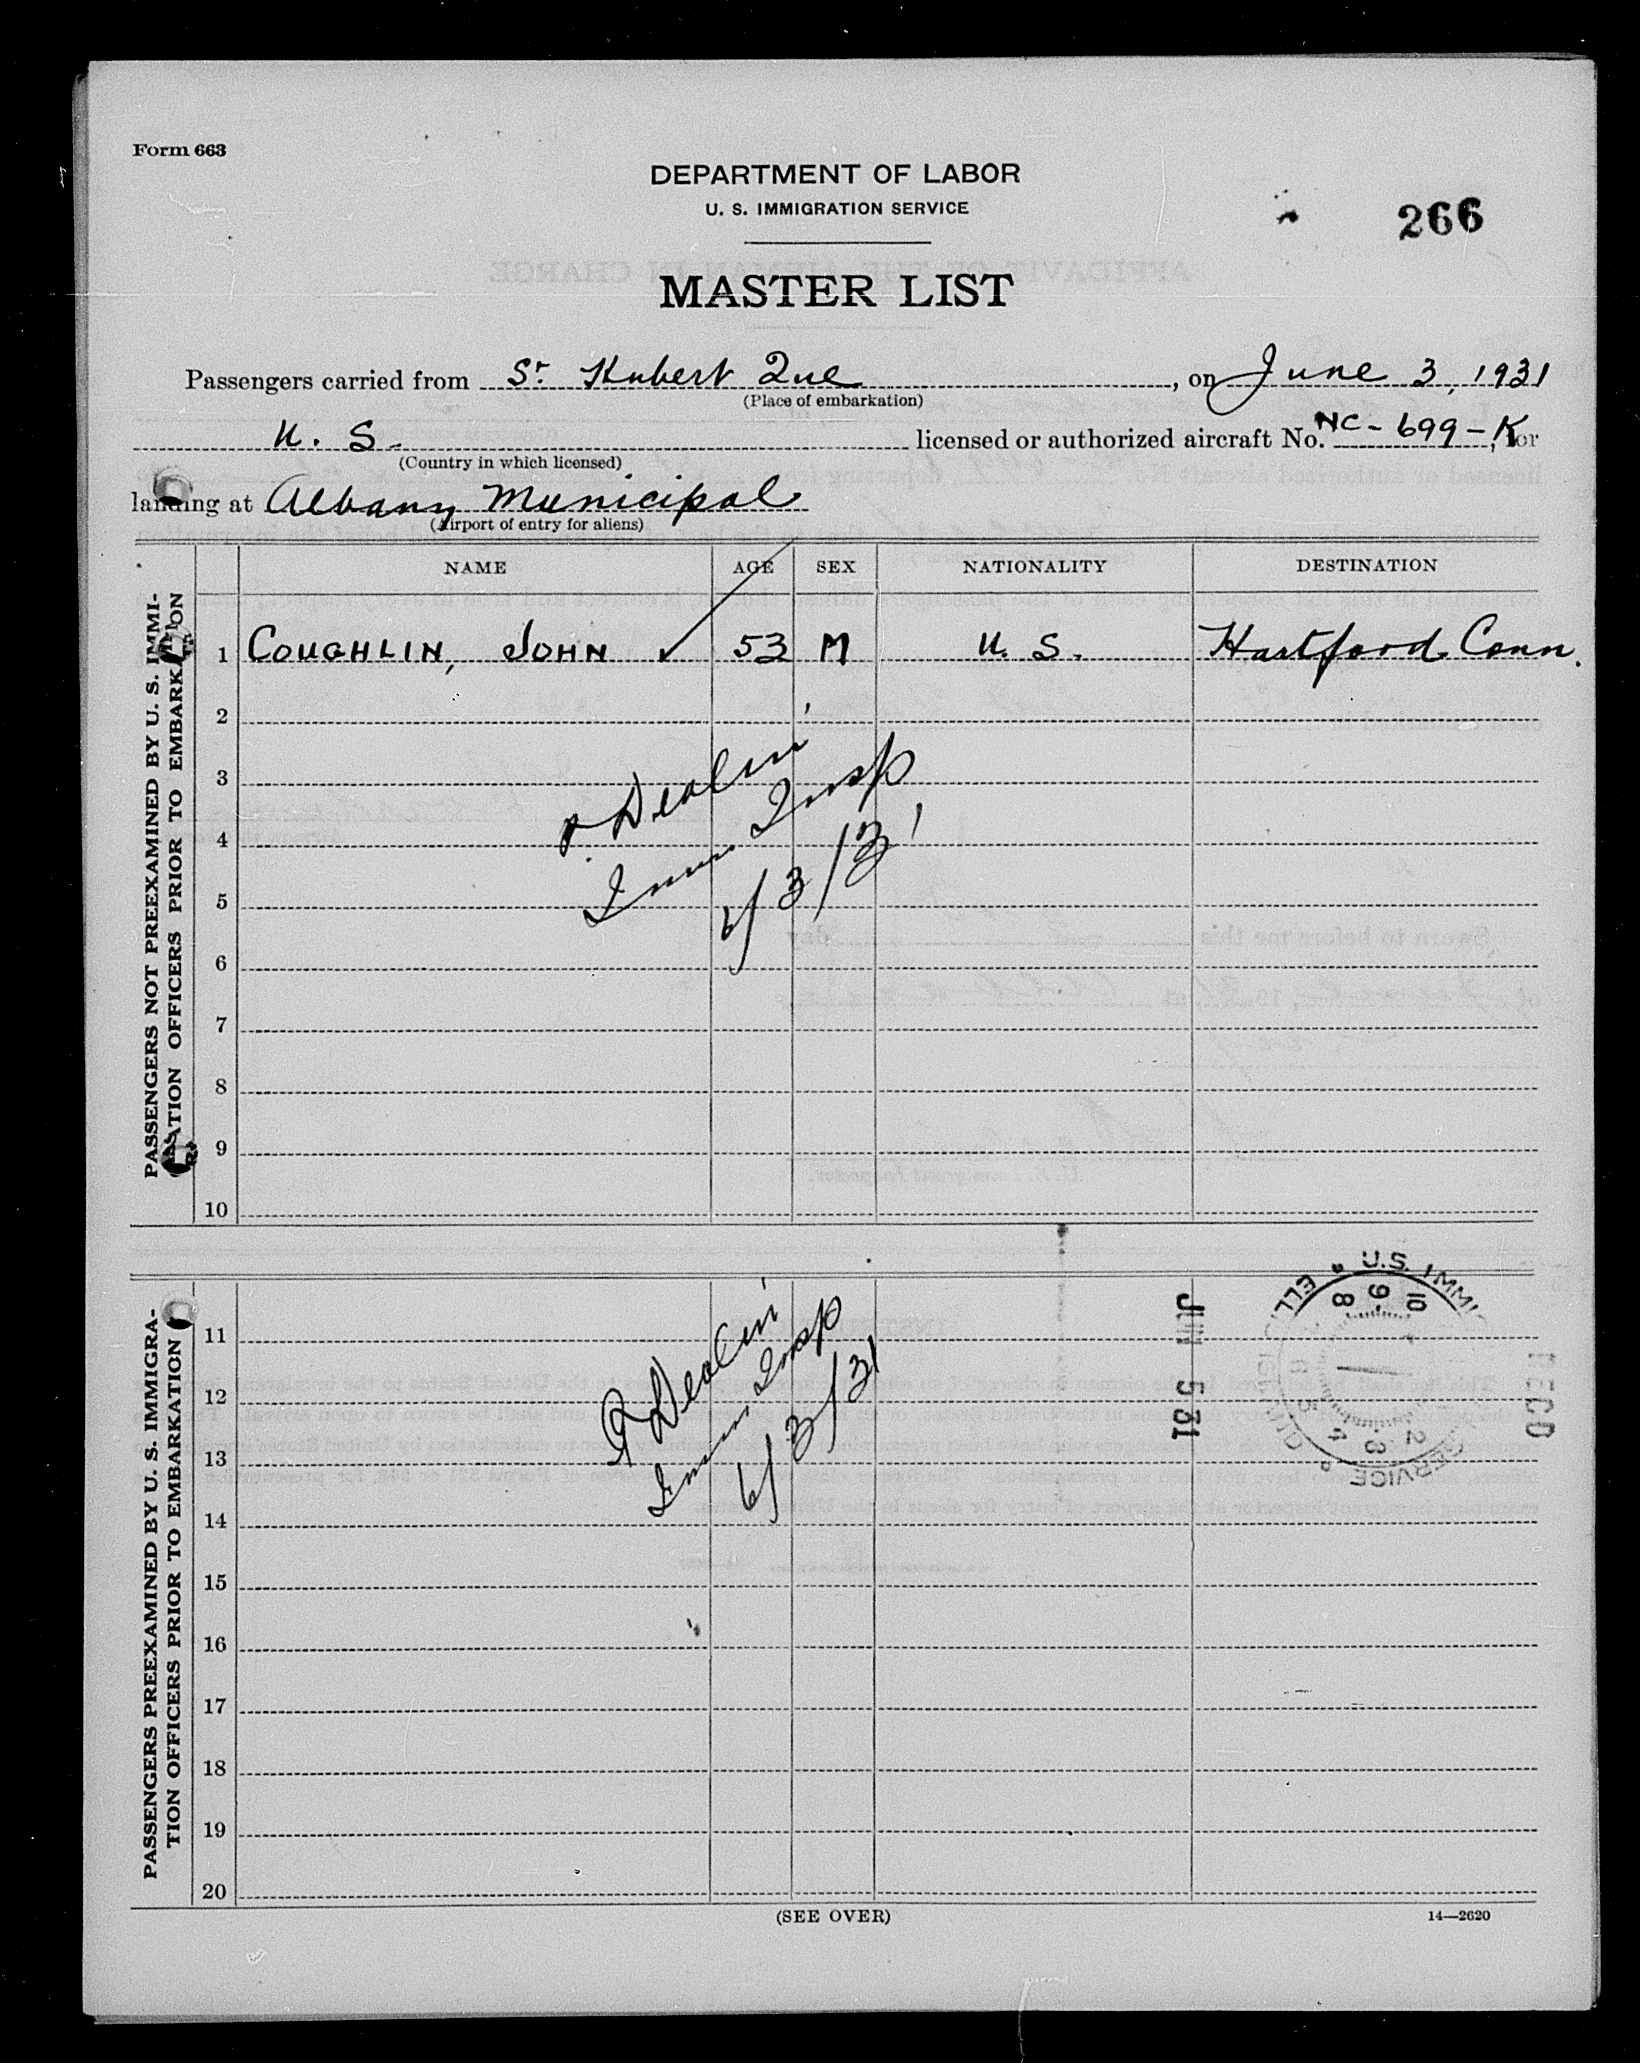 Form 663
DEPARTMENT OF LABOR
U. S. IMMIGRATION SERVICE
266
MASTER LIST
Passengers carried from St Hubert Que, on June 3, 1931
(Place of embarkation)
U. S. licensed or authorized aircraft No. NC-699-K, or
(Country in which licensed)
landing at Albany Municipal
(Airport of entry for aliens)
NAME AGE SEX NATIONALITY DESTINATION
PASSENGERS NOT PREEXAMINED BY U. S. IMMI-
GRATION OFFICERS PRIOR TO EMBARKATION
1 COUGHLIN, JOHN ✓ 53 M U. S. Hartford Conn.
2
3
4
5
6
7
8
9
10
Imm Insp
6/3/31
PASSENGERS PREEXAMINED BY U. S. IMMIGRA-
TION OFFICERS PRIOR TO EMBARKATION
11
12
13
14
15
16
17
18
19
20
Imm Insp
6/3/31
JUN 5 31
U.S. IMMI
SERVICE
8 9 10
2 3 4 5
REC'D
(SEE OVER)
14—2620